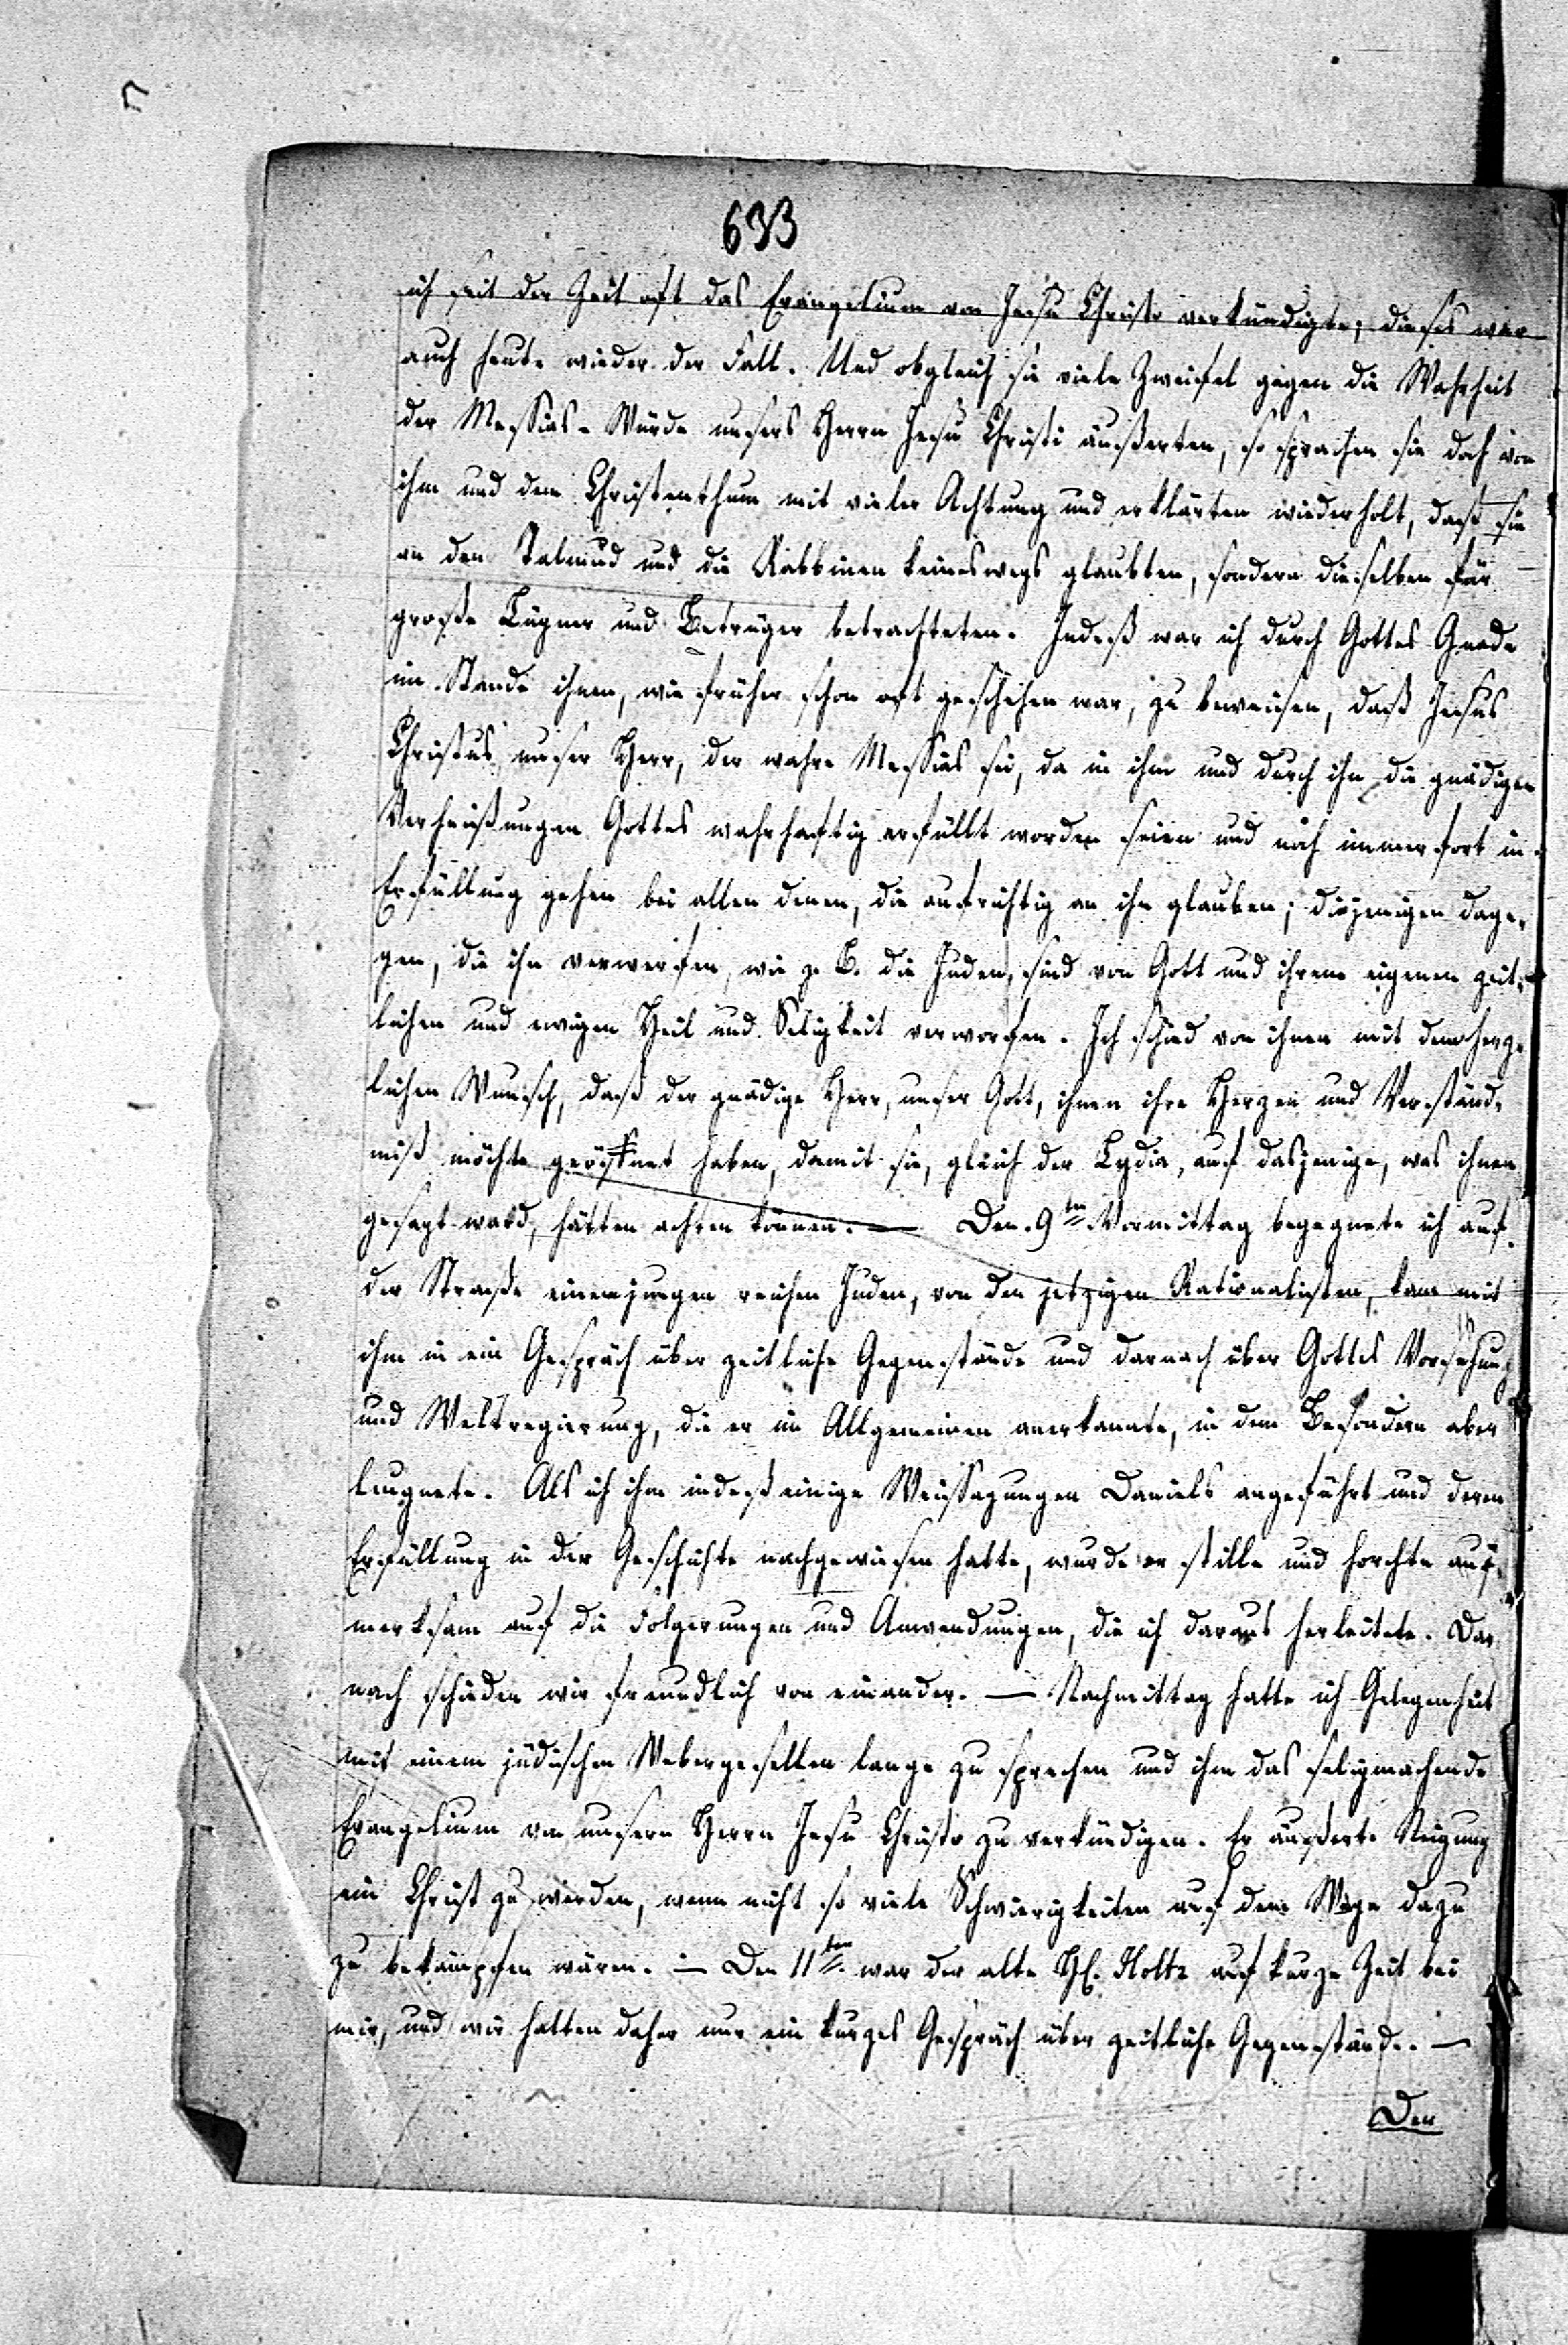 633
ich seit der Zeit oft das Evangelium von Jesu Christo verkündigte; dieses war
auch heute wieder der Fall. Und obgleich sie viele Zweifel gegen die Wahrheit
der Messias-Würde unsers Herrn Jesu Christi äußerten, so sprachen sie doch von
ihm und dem Christenthum mit vieler Achtung und erklärten wiederholt, daß sie
an den Talmud und die Rabbinen keineswegs glaubten, sondern dieselben für
große Lügner und Betrüger betrachteten. Indeß war ich durch Gottes Gnade
im Stande ihnen, wie früher schon oft geschehen war, zu beweisen, daß Jesus
Christus, unser Herr, der wahre Messias sei, da in ihm und durch ihn die gnädigen
Verheißungen Gottes wahrhaftig erfüllt worden seien und noch immerfort in
Erfüllung gehen bei allen denen, die aufrichtig an ihn glauben; diejenigen dage-
gen, die ihn verwerfen, wie z. B. die Juden, sind von Gott und ihrem eigenen zeit-
lichen und ewigen Heil und Seligkeit verworfen. Ich schied von ihnen mit dem herz-
lichen Wunsch, daß der gnädige Herr, unser Gott, ihnen ihre Herzen und Verständ-
niß möchte geöffnet haben, damit sie, gleich der Lydia, auf dasjenige, was ihnen
gesagt ward, hätten achten können. — Den 9ten Vormittag begegnete ich auf
der Straße einem jungen reichen Juden, von den jetzigen Rationalisten, kam mit
ihm in ein Gespräch über zeitliche Gegenstände und darnach über Gottes Vorsehung
und Weltregierung, die er im Allgemeinen anerkannte, in dem Besondern aber
leugnete. Als ich ihm indeß einige Weissagungen Daniels angeführt und deren
Erfüllung in der Geschichte nachgewiesen hatte, wurde er stille und horchte auf-
merksam auf die Folgerungen und Anwendungen, die ich daraus herleitete. Dar-
nach schieden wir freundlich von einander. — Nachmittag hatte ich Gelegenheit
mit einem jüdischen Webergesellen lange zu sprechen und ihm das seligmachende
Evangelium von unserm Herrn Jesu Christo zu verkündigen. Er äußerte Neigung
ein Christ zu werden, wenn nicht so viele Schwierigkeiten auf dem Wege dazu
zu bekämpfen wären. — Den 11ten war der alte H. Holtz auf kurze Zeit bei
mir, und wir hatten daher nur ein kurzes Gespräch über zeitliche Gegenstände. —
Den